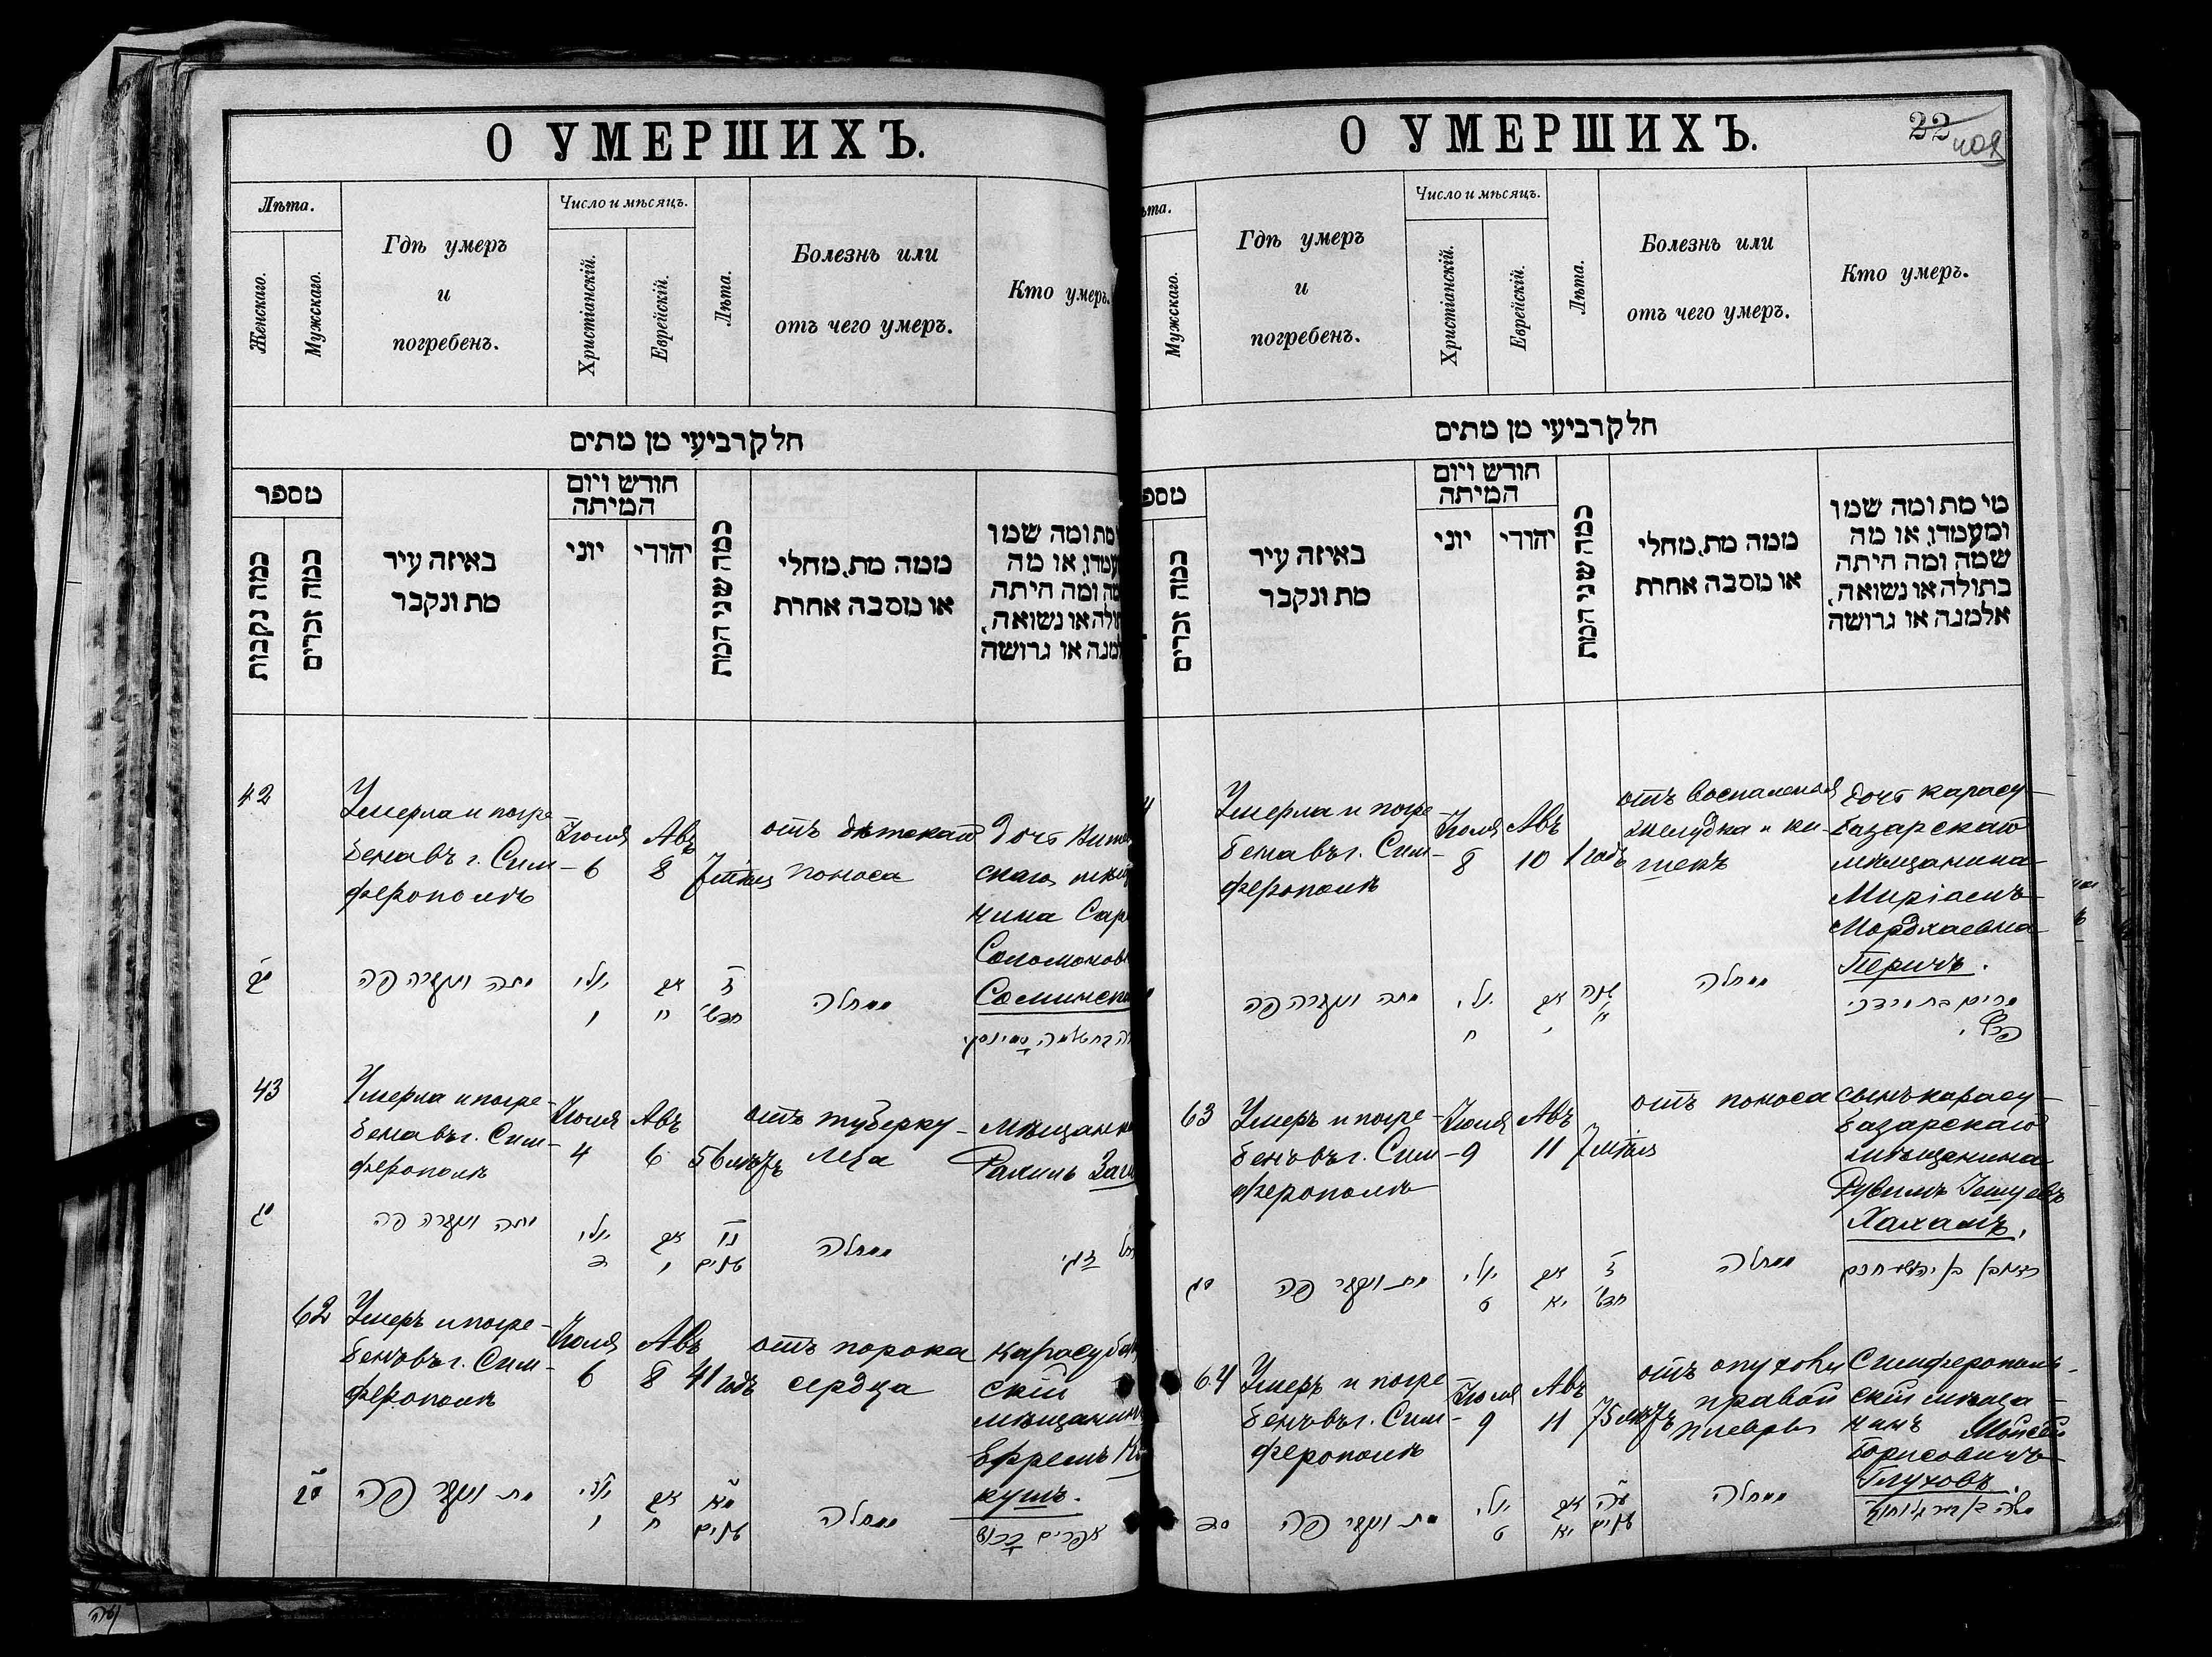 О УМЕРШИХЪ.
Лѣта.
Женскаго.
Мужскаго.
Гдѣ умеръ
и
погребенъ.
Число и мѣсяцъ.
Христіанскій.
Еврейскій.
Лѣта.
Болезнь или
отъ чего умеръ.
Кто умеръ.
חלק רביעי מן מתים
מספר
כמה נקבות
כמה זכרים
באיזה עיר
מת ונקבר
חודש ויום
המיתה
יוני
יהודי
כמה שני המת
ממה מת, מחלי
או מסבה אחרת
מת ומה שמו
או מה
ומה היתה
או נשואה,
או גרושה
42
Умерла и погре
бена въ г. Сим-
ферополѣ
Іюля
6
Авъ
8
7 мѣсяц
отъ дѣтскаго
поноса
дочь
скаго
нина
Сояинс
מתה ונקברה פה
יולי
ו
אב
ח
ז
חדש'
מחלה
43
Умерла и погре-
бена въ г. Сим-
ферополѣ
Іюля
4
Авъ
6
56 лѣтъ
отъ туберку-
леза
Мѣщанка
Рахиль
מג
מתה ונקברה פה
יולי
ד
אב
ו
נו
שנים
מחלה
62
Умеръ и погре-
бенъ въ г. Сим-
ферополѣ
Іюля
6
Авъ
8
41 годъ
отъ порока
сердца
Карасубаз
скій
мѣщанинъ
Ефремъ
кушъ.
סב
מת ונקבר פה
יולי
ו
אב
ח
מא
שנים
מחלה
אפרים
О УМЕРШИХЪ.
22
Мужскаго.
Гдѣ умеръ
и
погребенъ.
Число и мѣсяцъ.
Христіанскій.
Еврейскій.
Лѣта.
Болезнь или
отъ чего умеръ.
Кто умеръ.
חלק רביעי מן מתים
כמה זכרים
באיזה עיר
מת ונקבר
חודש ויום
המיתה
יוני
יהודי
כמה שני המת
ממה מת, מחלי
או מסבה אחרת
מי מת ומה שמו
ומעמדו, או מה
שמה ומה היתה
בתולה או נשואה,
אלמנה או גרושה
Умерла и погре-
бена въ г. Сим-
ферополѣ
Іюля
8
Авъ
10
1 годъ
отъ воспаленія
желудка и ки-
шекъ
дочь карасу-
базарскаго
мѣщанина
Миріамъ
Мордхаевна
Перичъ.
מתה ונקברה פה
יולי
ח
אב
י
שנה
מחלה
מרים בת מרדכי
63
Умеръ и погре-
бенъ въ г. Сим-
ферополѣ
Іюля
9
Авъ
11
7 мѣсяц
отъ поноса
сынъ карасу-
базарскаго
мѣщанина
Рувимъ
Хахамъ.
סג
מת ונקבר פה
יולי
ט
אב
יא
ז
חדש'
מחלה
ראובן בן יהושע חכם
64
Умеръ и погре
бенъ въ г. Сим-
ферополѣ
Іюля
9
Авъ
11
75 лѣтъ
отъ опухоли
правой
плевры
Симферополь-
скій мѣща-
нинъ Мойсей
Борисовичъ
Глуховъ.
סד
מת ונקבר פה
יולי
ט
אב
יא
עה
שנים
מחלה